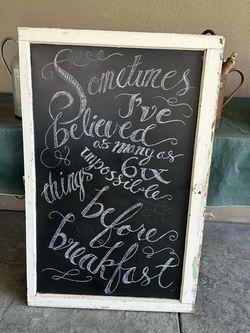 Sometimes
I've
Believed
as many as
6ix
impossible
things
before
breakfast